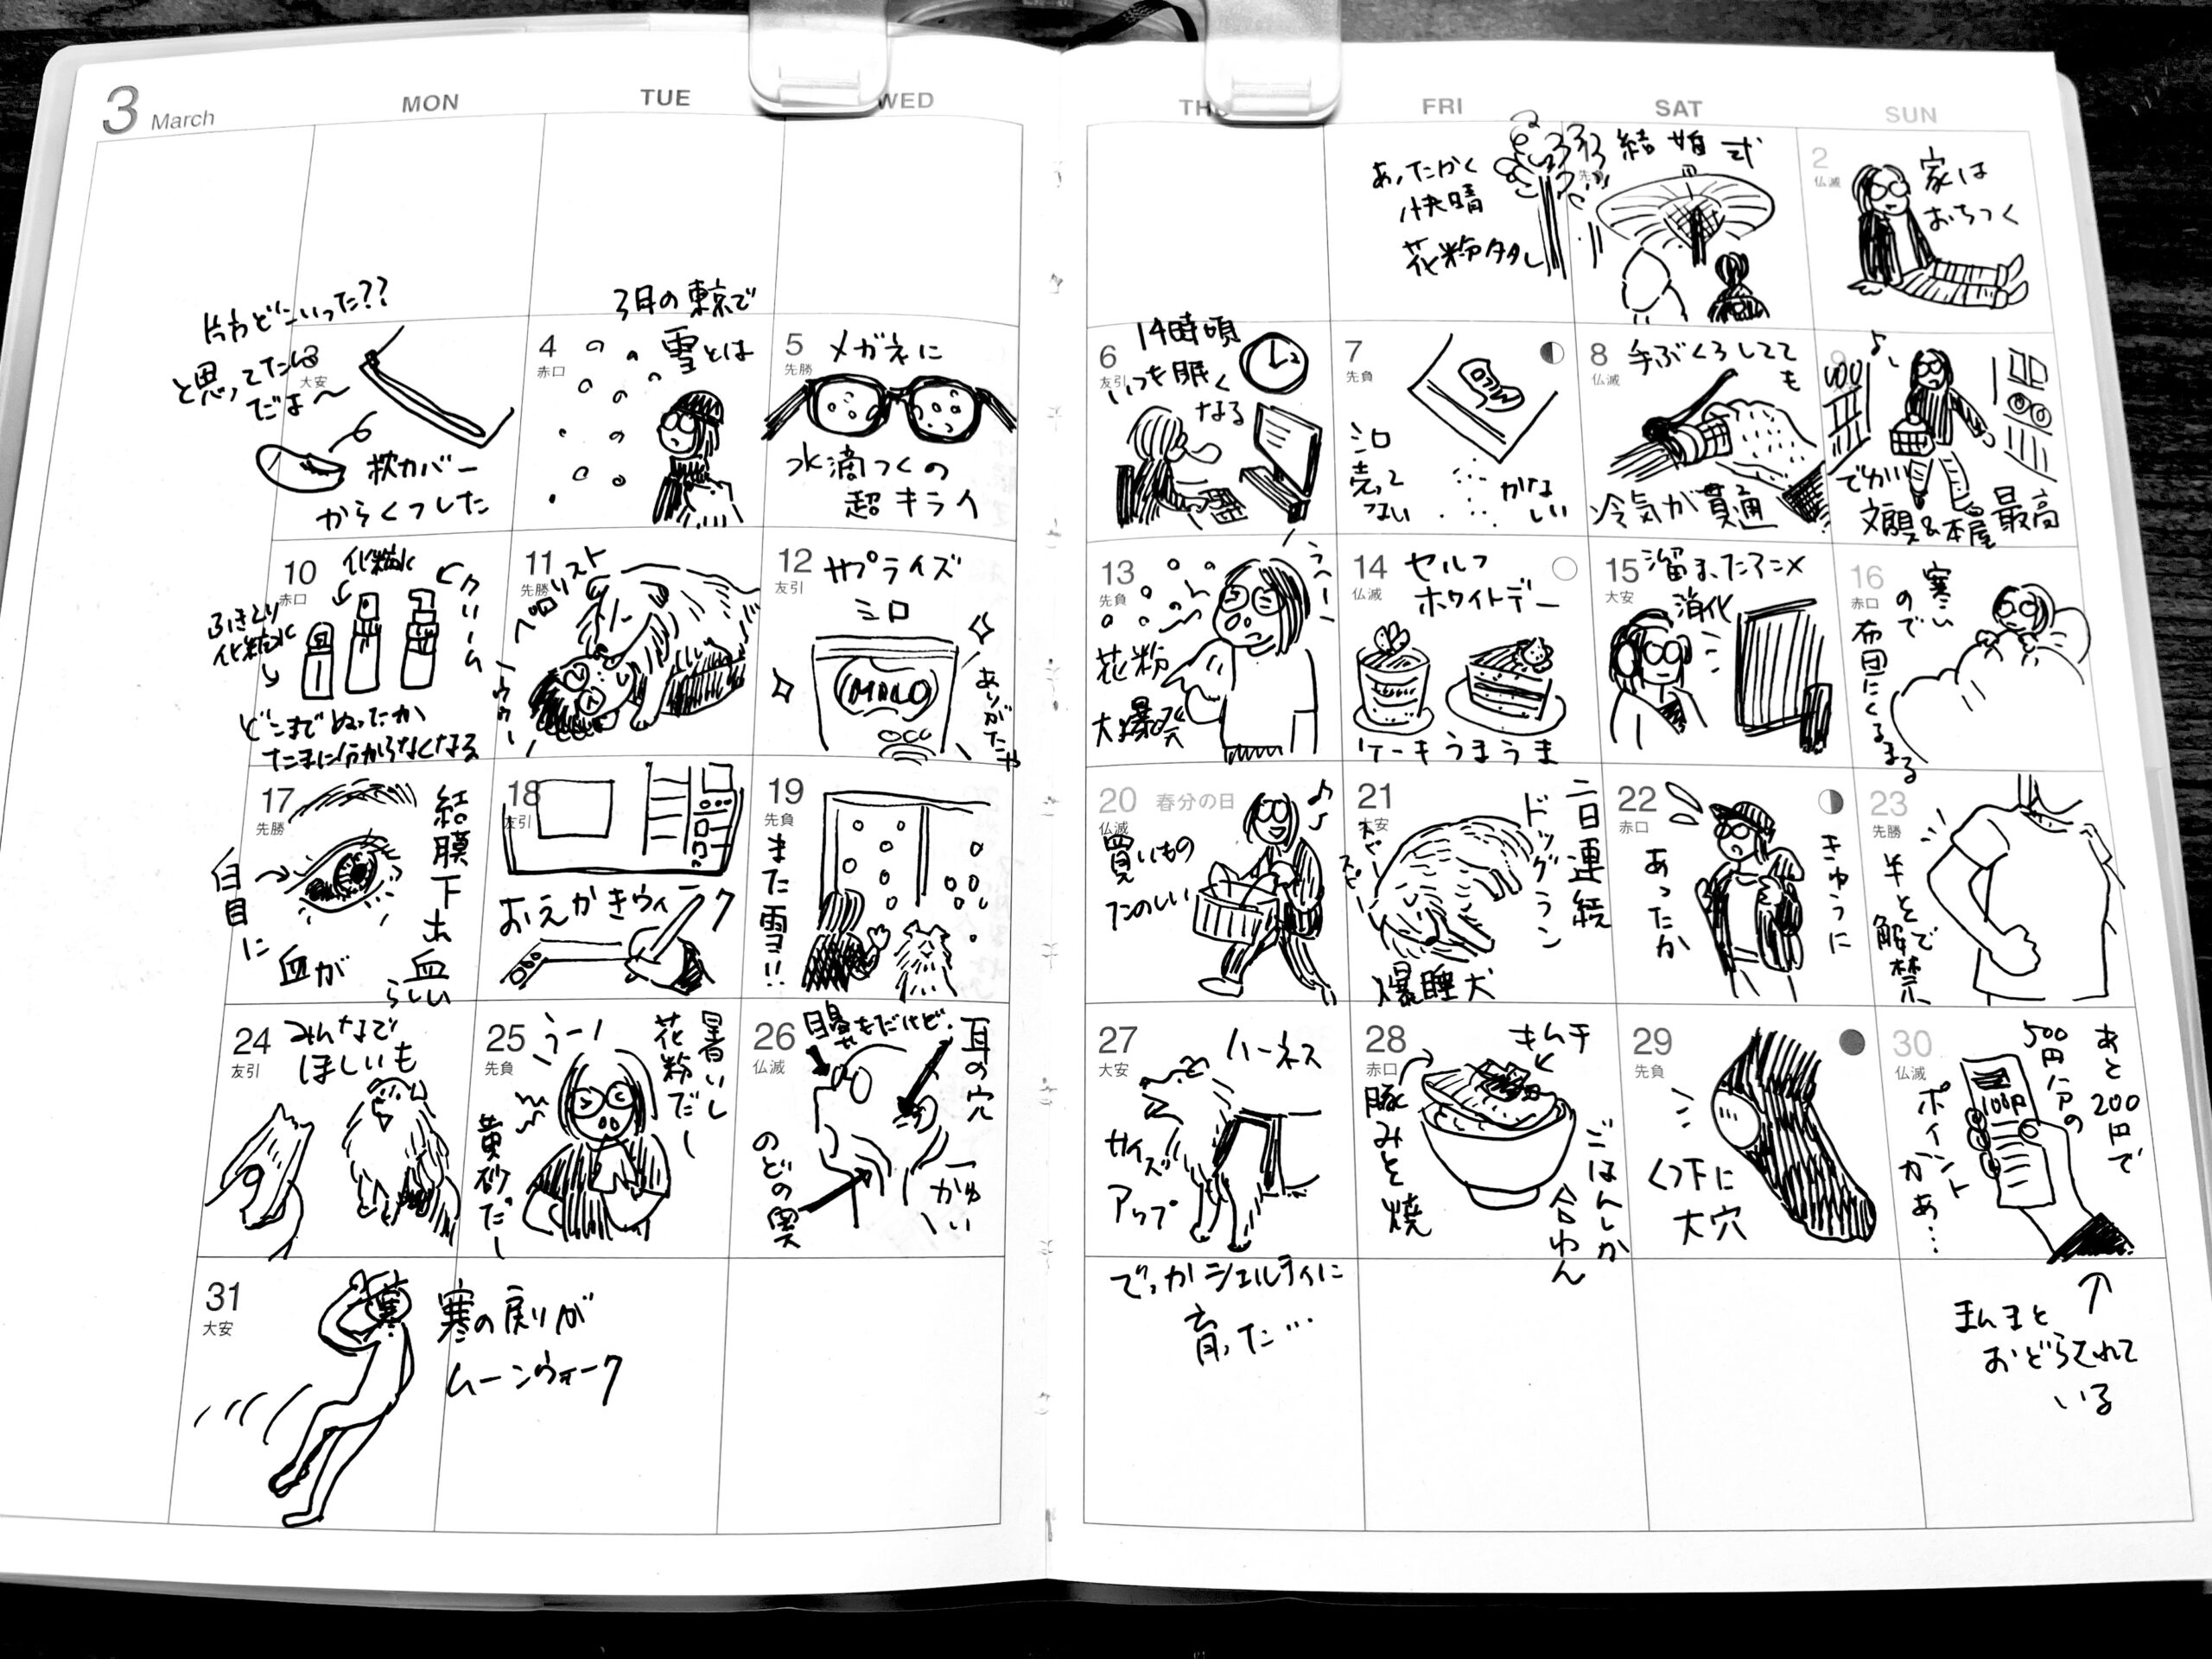 3 March
MON
TUE
WED
FRI
SAT
SUN
あったかく
快晴
花粉タタレ
結婚式
2
仏滅
家は
おちつく
片方どこいった??
と思ってたんだよ〜
大安
枕カバー
からくつした
4
赤口
3月の東京で
雪とは
5
先勝
メガネに
水滴つくの
超キライ
6
友引
14時頃
いつも眠く
なる
7
先負
ミロ
売って
ない
かな
しい
8
仏滅
手ぶくろしてて
も
冷気が貫通
でかい
文具&本屋最高
10
赤口
化粧水
クリーム
ふきとり
化粧水
どこまでぬったか
たまに分からなくなる
11
先勝
ペロリスト
12
友引
サプライズ
ミロ
MILO
ありがたや
13
先負
うへーー
花粉
大爆発
14
仏滅
セルフ
ホワイトデー
ケーキうまうま
15
大安
溜まったアニメ
消化
16
赤口
寒い
ので
布団にくるまる
17
先勝
結膜下出血
らしい
白目に
血が
18
友引
おえかきウィーク
19
先負
また雪!!
20 春分の日
仏滅
買いもの
たのしい
21
大安
二日連続
ドッグラン
爆睡犬
22
赤口
きゅうに
あったか
23
先勝
半そで
解禁
24
友引
みんなで
ほしいも
25
先負
うーー
暑いし
花粉だー
黄砂だー
26
仏滅
目鼻もだけど
耳の穴
のどの奥
かゆい
27
大安
ハーネス
サイズ
アップ
でっかシェルティに
育った…
28
赤口
キムチ
豚みそ焼
ごはんしか
合わん
29
先負
くつ下に
大穴
30
仏滅
あと200円で
500円分の
ポイント
かあ…
100P
まんまと
おどらされて
いる
31
大安
寒
寒の戻りが
ムーンウォーク